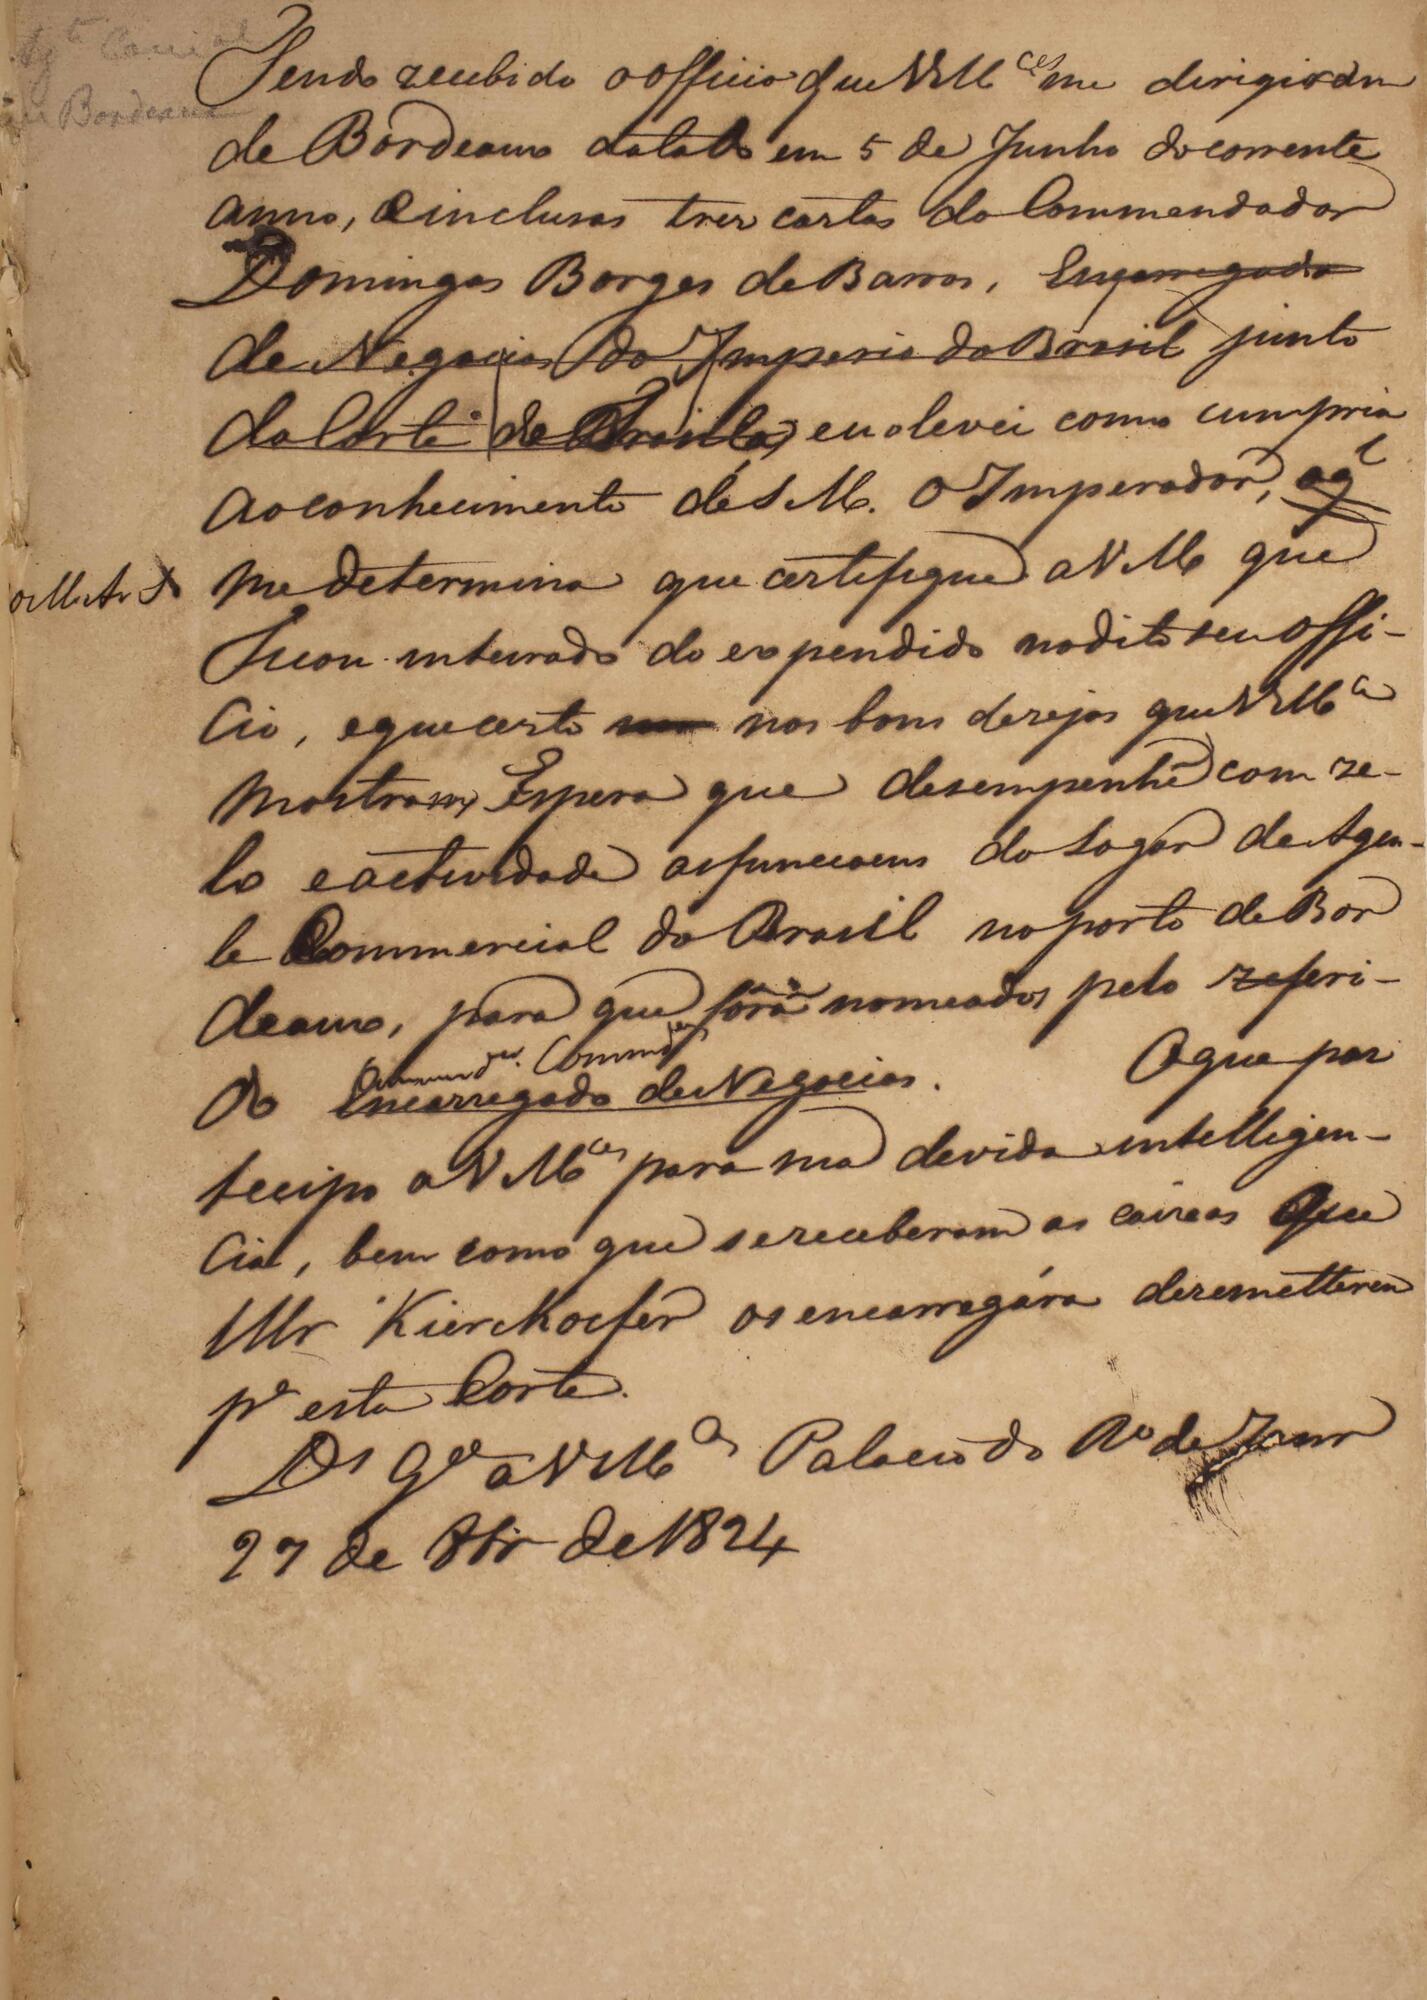 Bordeaux
Tendo recebido o officio que V Mces me dirigirão
de Bordeaux datado em 5 de Junho do corrente
anno, e inclusas tres cartas do Commendador
Domingos Borges de Barros, Encarregado
de Negocios do Imperio do Brasil junto
da Corte de França, eu o levei como cumpria
ao conhecimento de S M. O Imperador, o ql
me determina que certifique a V M que
Ficou inteirado do expendido no dito seu Offi-
cio, e que certo nos bons desejos que V Mce
mostram, Espera que desempenhe com ze-
lo e actividade as funccoens do Lugar de Agen-
te Commercial do Brasil no porto de Bor
deaux, para que forão nomeados pelo referi-
do Encarregado de Negocios. O que par
tecipo a V Mces para sua devida intelligen-
cia, bem como que se receberam as caixas que
Mr Kierckhoefer os encarregára de remetterem
pa esta Corte.
Ds Ge a V Mces Palacio do Ro de Janr
27 de 8br de 1824